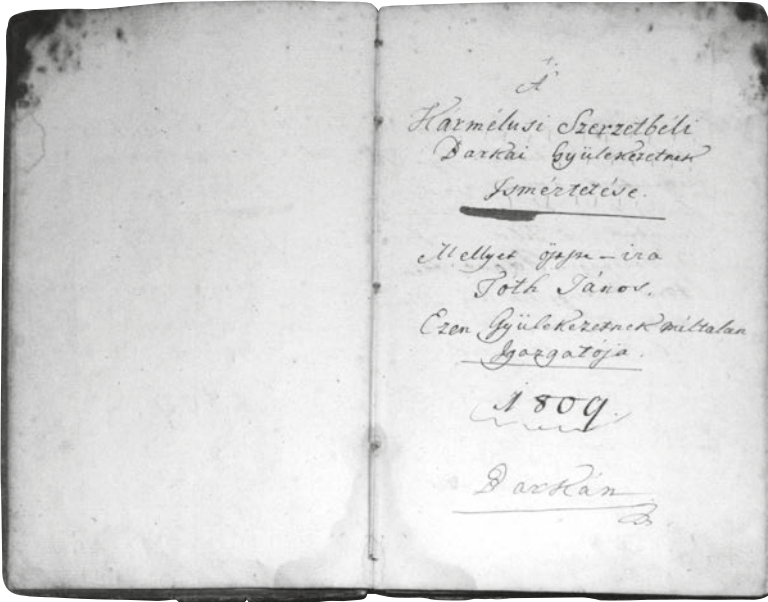 A
Kármélusi Szerzetbéli
Darkai Gyülekezetnek
Isméretése.
Mellyet öszve-ira
Toth János.
Ezen Gyülekezetnek méltatlan
Igazgatója.
1809.
Darkán